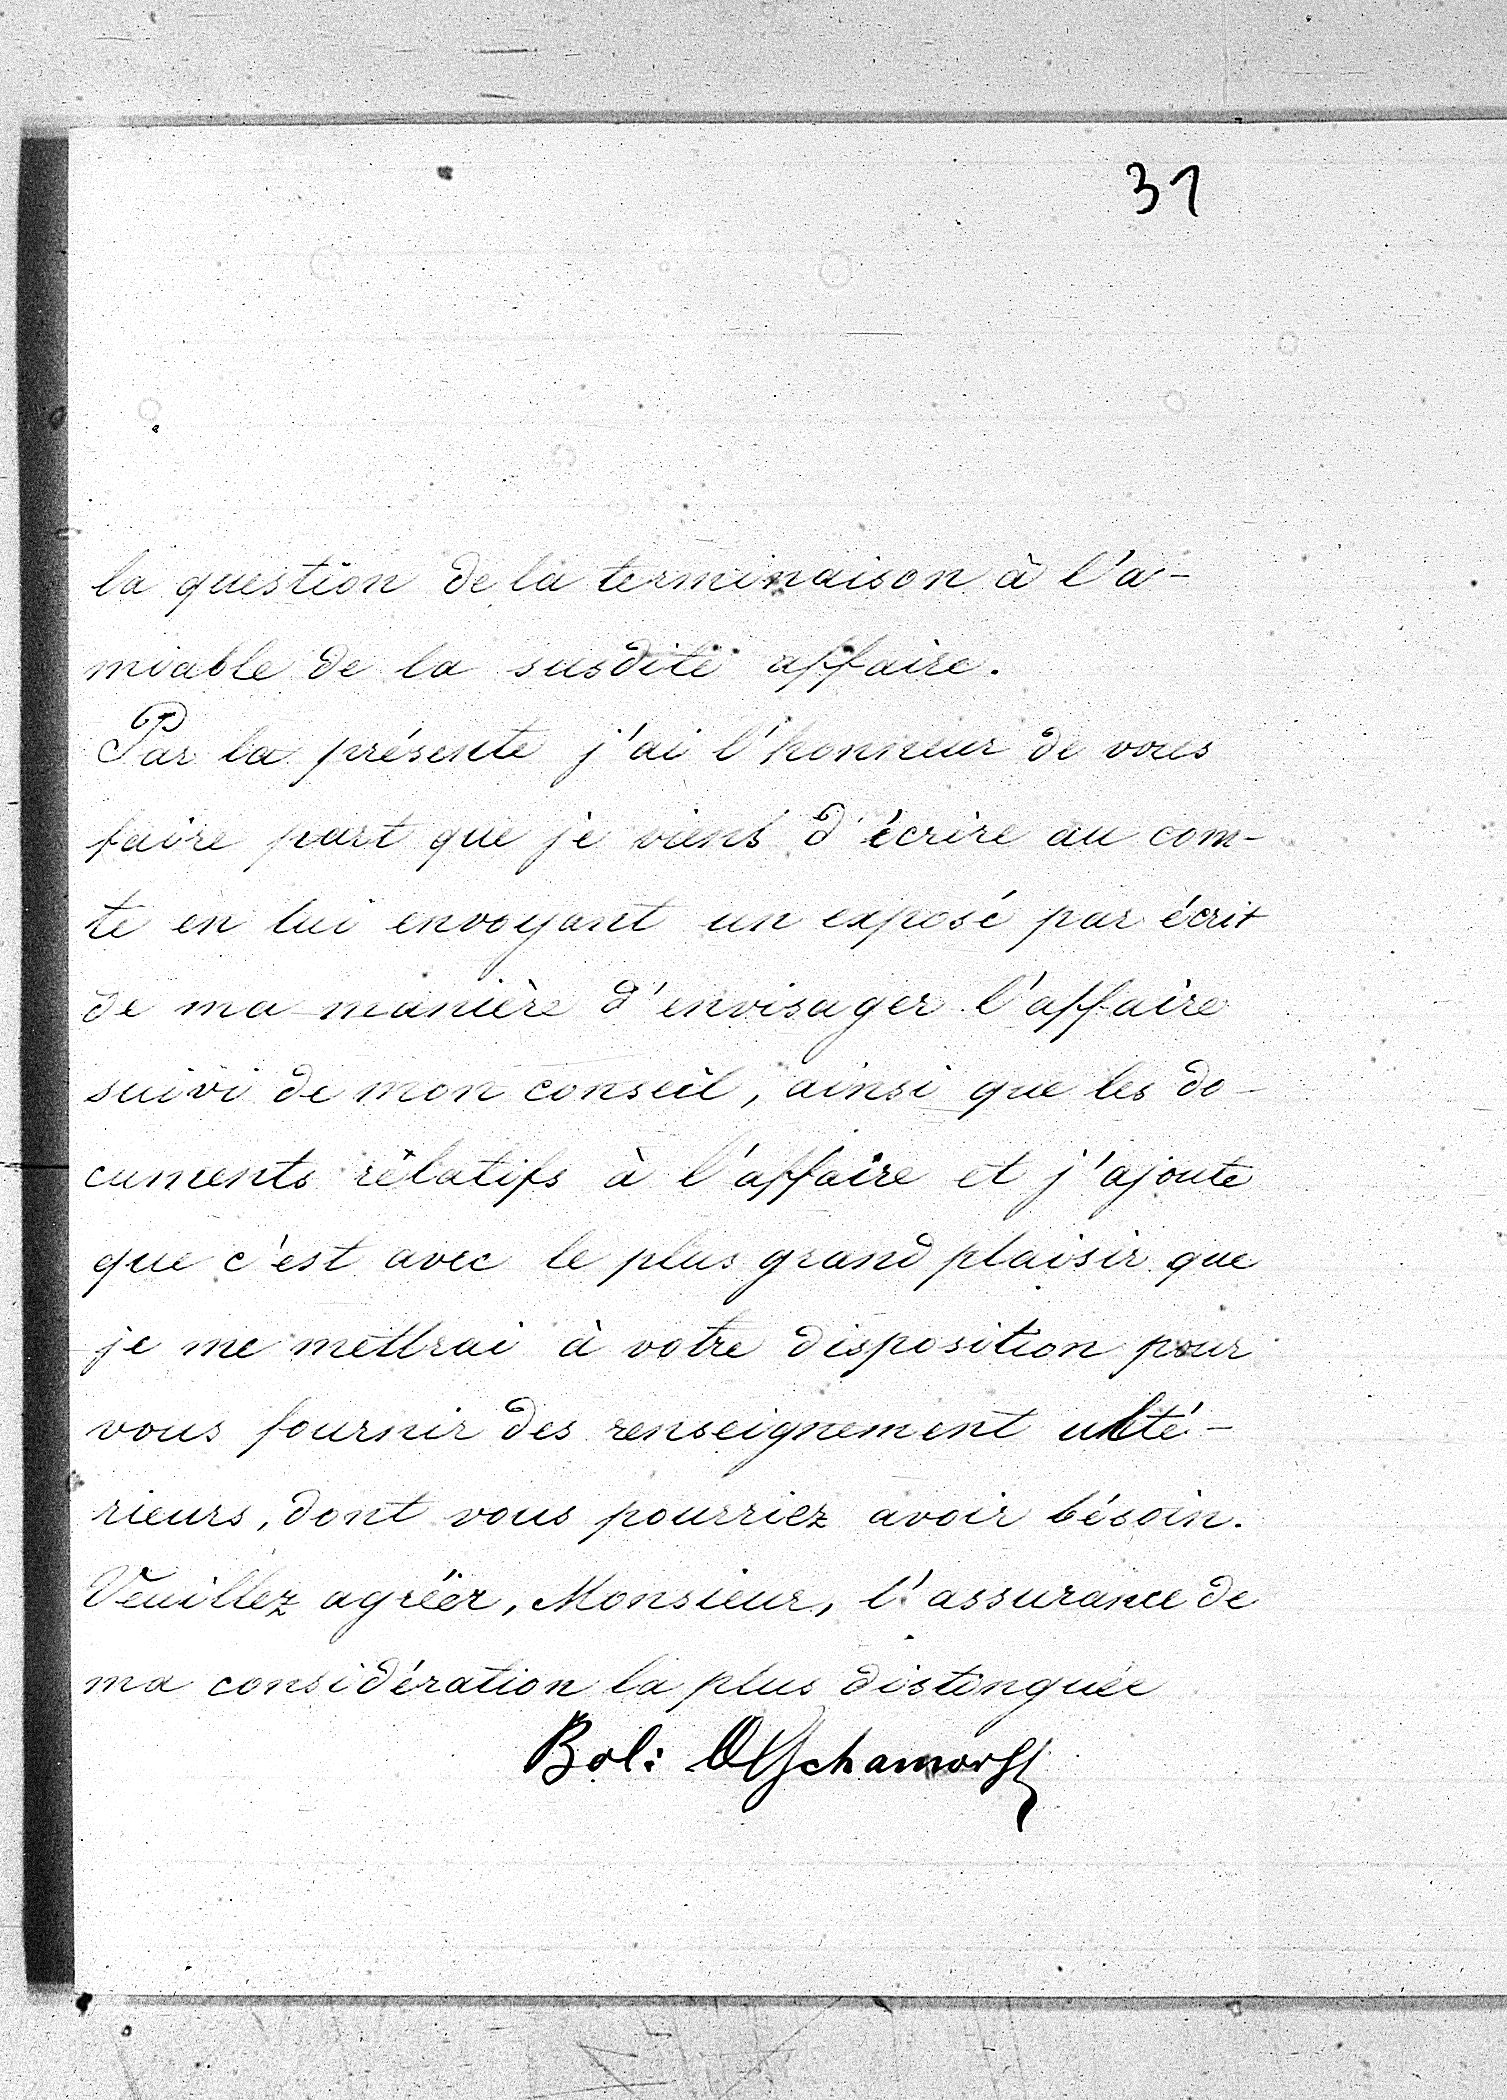 31
la question de la terminaison à l'a-
miable de la susdite affaire.
Par la présente j'ai l'honneur de vous
faire part que je viens d'écrire au com-
te en lui envoyant un exposé par écrit
de ma manière d'envisager l'affaire
suivi de mon conseil, ainsi que les do-
cuments rélatifs à l'affaire et j'ajoute
que c'est avec le plus grand plaisir que
je me mettrai à votre disposition pour
vous fournir des renseignement ulté-
rieurs, dont vous pourriez avoir bésoin.
Veuillez agréer, Monsieur, l'assurance de
ma considération la plus distinguée
Bol: